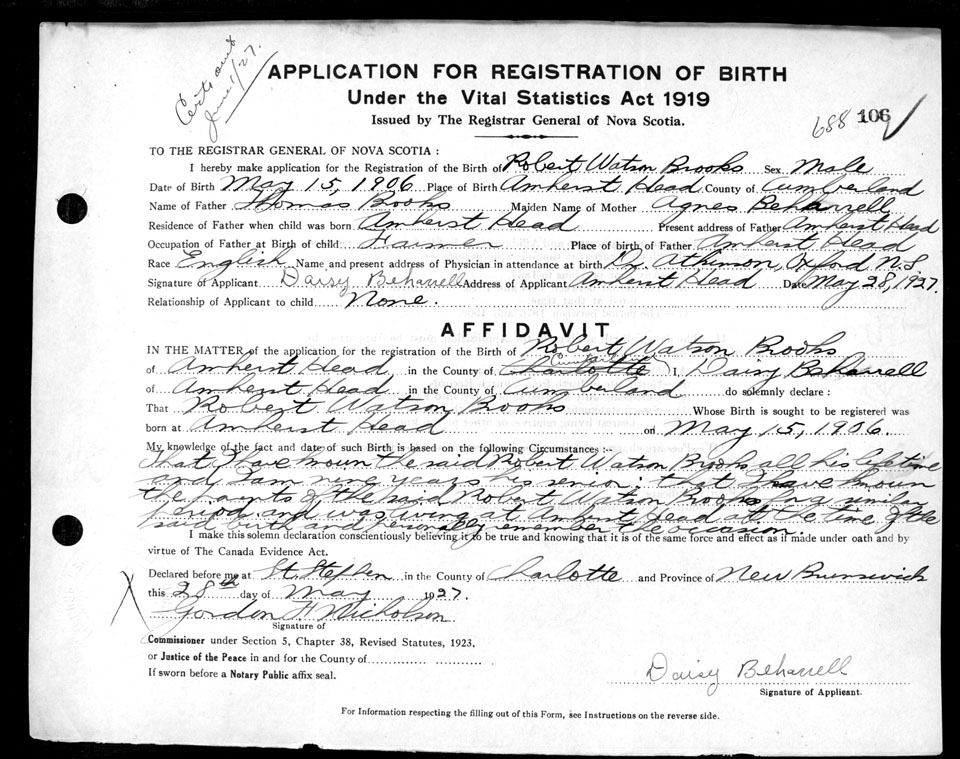 Certs out
June 1/27.
APPLICATION FOR REGISTRATION OF BIRTH
Under the Vital Statistics Act 1919
Issued by The Registrar General of Nova Scotia.
688 106
TO THE REGISTRAR GENERAL OF NOVA SCOTIA :
I hereby make application for the Registration of the Birth of Robert Watson Brooks Sex Male
Date of Birth May 15, 1906 Place of Birth Amherst Head County of Cumberland
Name of Father Thomas Brooks Maiden Name of Mother Agnes Beharrell
Residence of Father when child was born Amherst Head Present address of Father Amherst Head
Occupation of Father at Birth of child Farmer Place of birth of Father Amherst Head
Race English Name and present address of Physician in attendance at birth Dr. Atkinson, Oxford N.S.
Signature of Applicant Daisy Beharrell Address of Applicant Amherst Head Date May 28, 1927.
Relationship of Applicant to child None.
AFFIDAVIT
IN THE MATTER of the application for the registration of the Birth of Robert Watson Brooks
Cumberland
of Amherst Head in the County of Charlotte I, Daisy Beharrell
of Amherst Head in the County of Cumberland do solemnly declare :
That Robert Watson Brooks Whose Birth is sought to be registered was
born at Amherst Head on May 15, 1906.
My knowledge of the fact and date of such Birth is based on the following Circumstances :-
That I have known the said Robert Watson Brooks all his lifetime
and I am nine years his senior: that I have known
the parents of the said Robert Watson Brooks for a similar
period and was living at Amherst Head at the time of the
said birth and personally remember the occasion.
I make this solemn declaration conscientiously believing it to be true and knowing that it is of the same force and effect as if made under oath and by
virtue of The Canada Evidence Act.
Declared before me at St. Stephen in the County of Charlotte and Province of New Brunswick
this 28th day of May 1927.
Gordon H Nicholson
Signature of
Commissioner under Section 5, Chapter 38, Revised Statutes, 1923,
or Justice of the Peace in and for the County of
If sworn before a Notary Public affix seal.
Daisy Beharrell
Signature of Applicant.
For Information respecting the filling out of this Form, see Instructions on the reverse side.